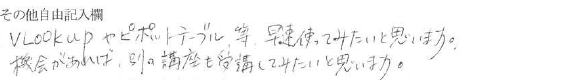 その他自由記入欄
VLOOKUPやピボットテーブル等、早速使ってみたいと思います。
機会があれば、別の講座も受講してみたいと思います。